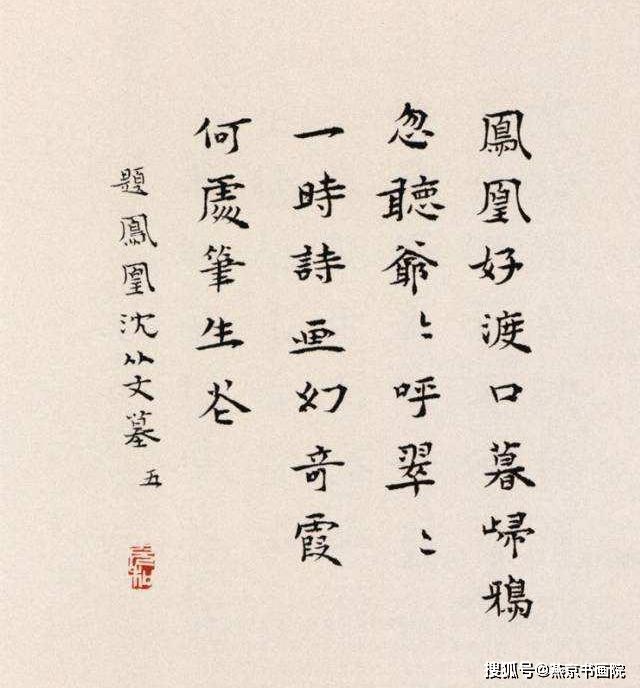 鳳凰好渡口暮歸鴉
忽聽爺〻呼翠〻
一時詩画幻奇霞
何處筆生花
題鳳凰沈从文墓 五
搜狐号@燕京书画院